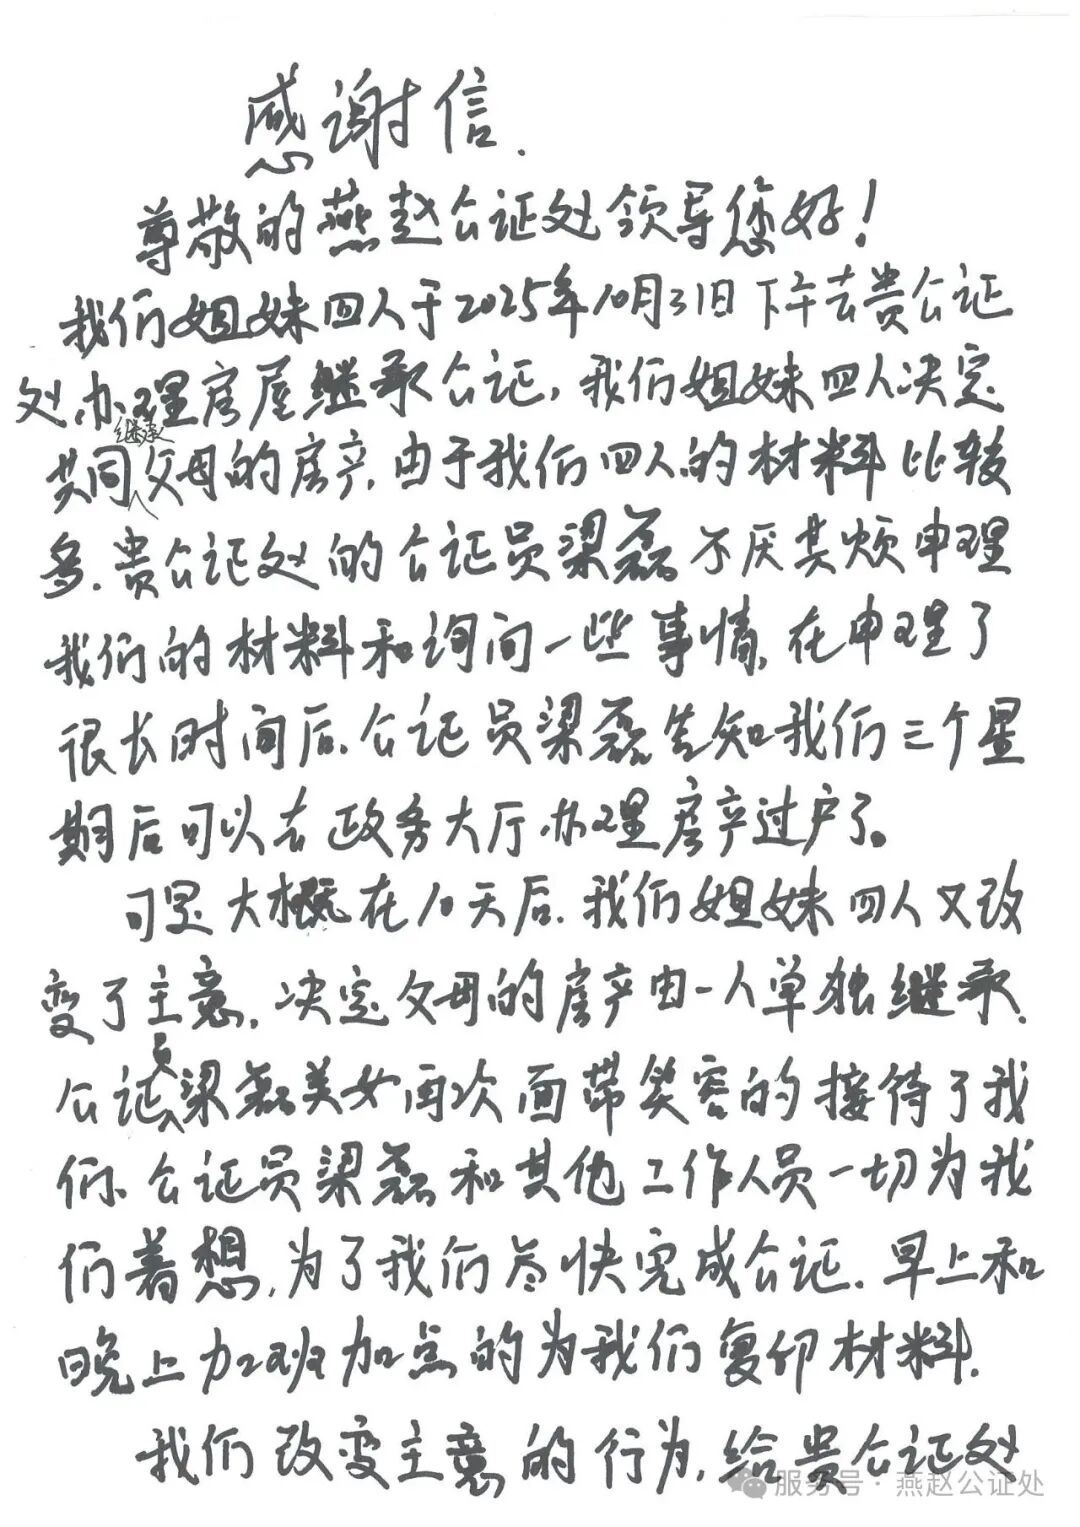 感谢信.
尊敬的燕赵公证处领导您好!
我们姐妹四人于2025年10月31日下午去贵公证
处办理房屋继承公证,我们姐妹四人决定
共同继承父母的房产.由于我们四人的材料比较
多.贵公证处的公证员梁磊不厌其烦申理
我们的材料和询问一些事情,在申理了
很长时间后、公证员梁磊告知我们三个星
期后可以去政务大厅办理房产过户了。
可是大概在10天后.我们姐妹四人又改
变了主意.决定父母的房产由一人单独继承.
公证员梁磊美女再次面带笑容的接待了我
们、公证员梁磊和其他工作人员一切为我
们着想,为了我们尽快完成公证.早上和
晚上加班加点的为我们复印材料.
我们改变主意的行为,给贵公证处
服务号·燕赵公证处